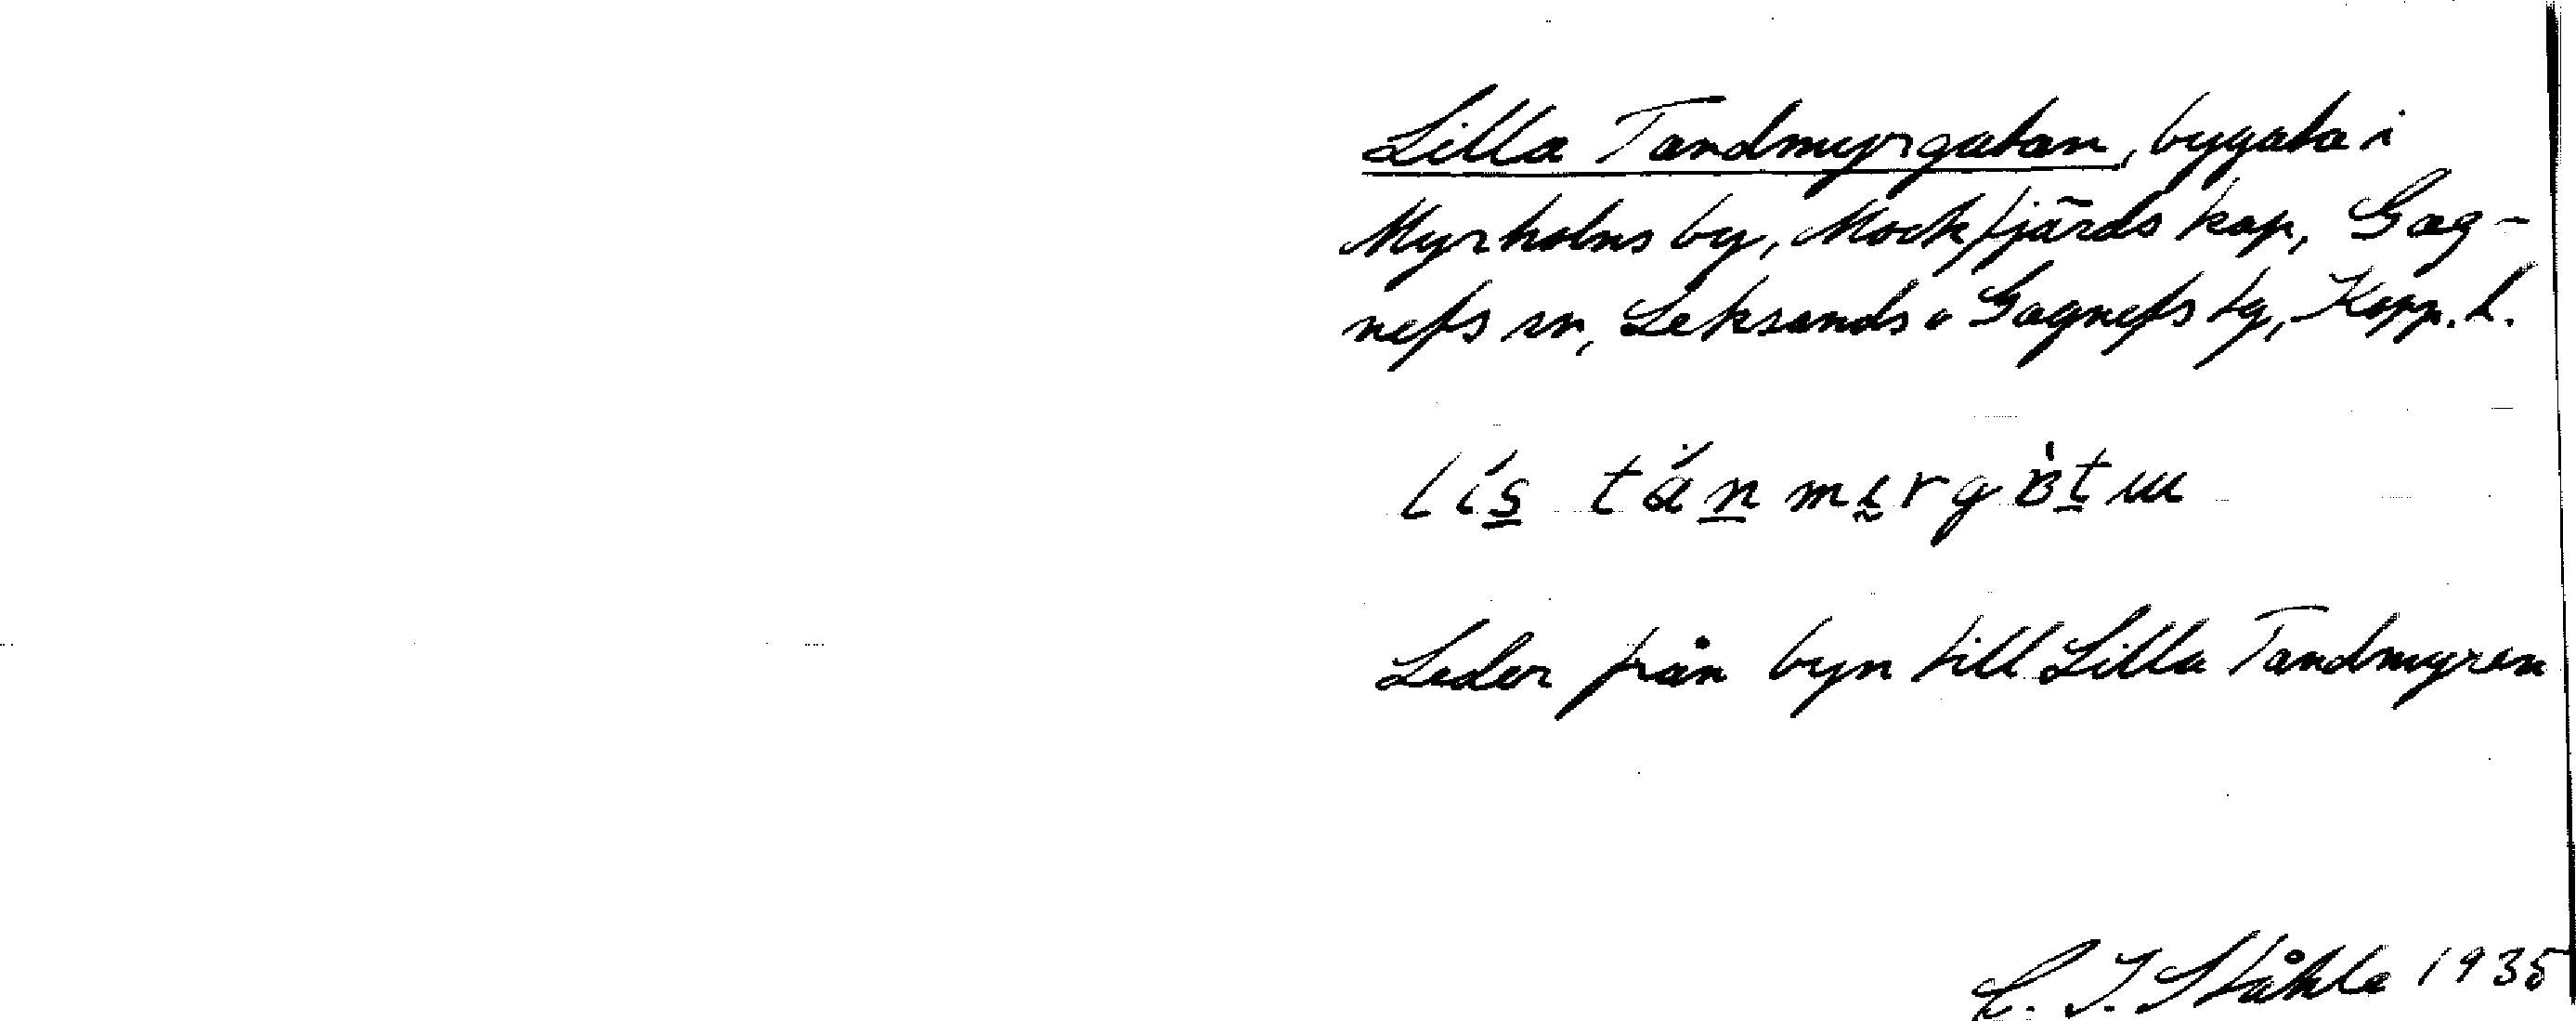 Lilla Tandmyrgatan, bygata i
Myrholns by, Mockfjärds kap, Gag-
nefs sn, Leksands o Gagnefs tg, Kopp. l.
Leder från byn till Lilla Tandmyren
C. I. Ståhle 1935